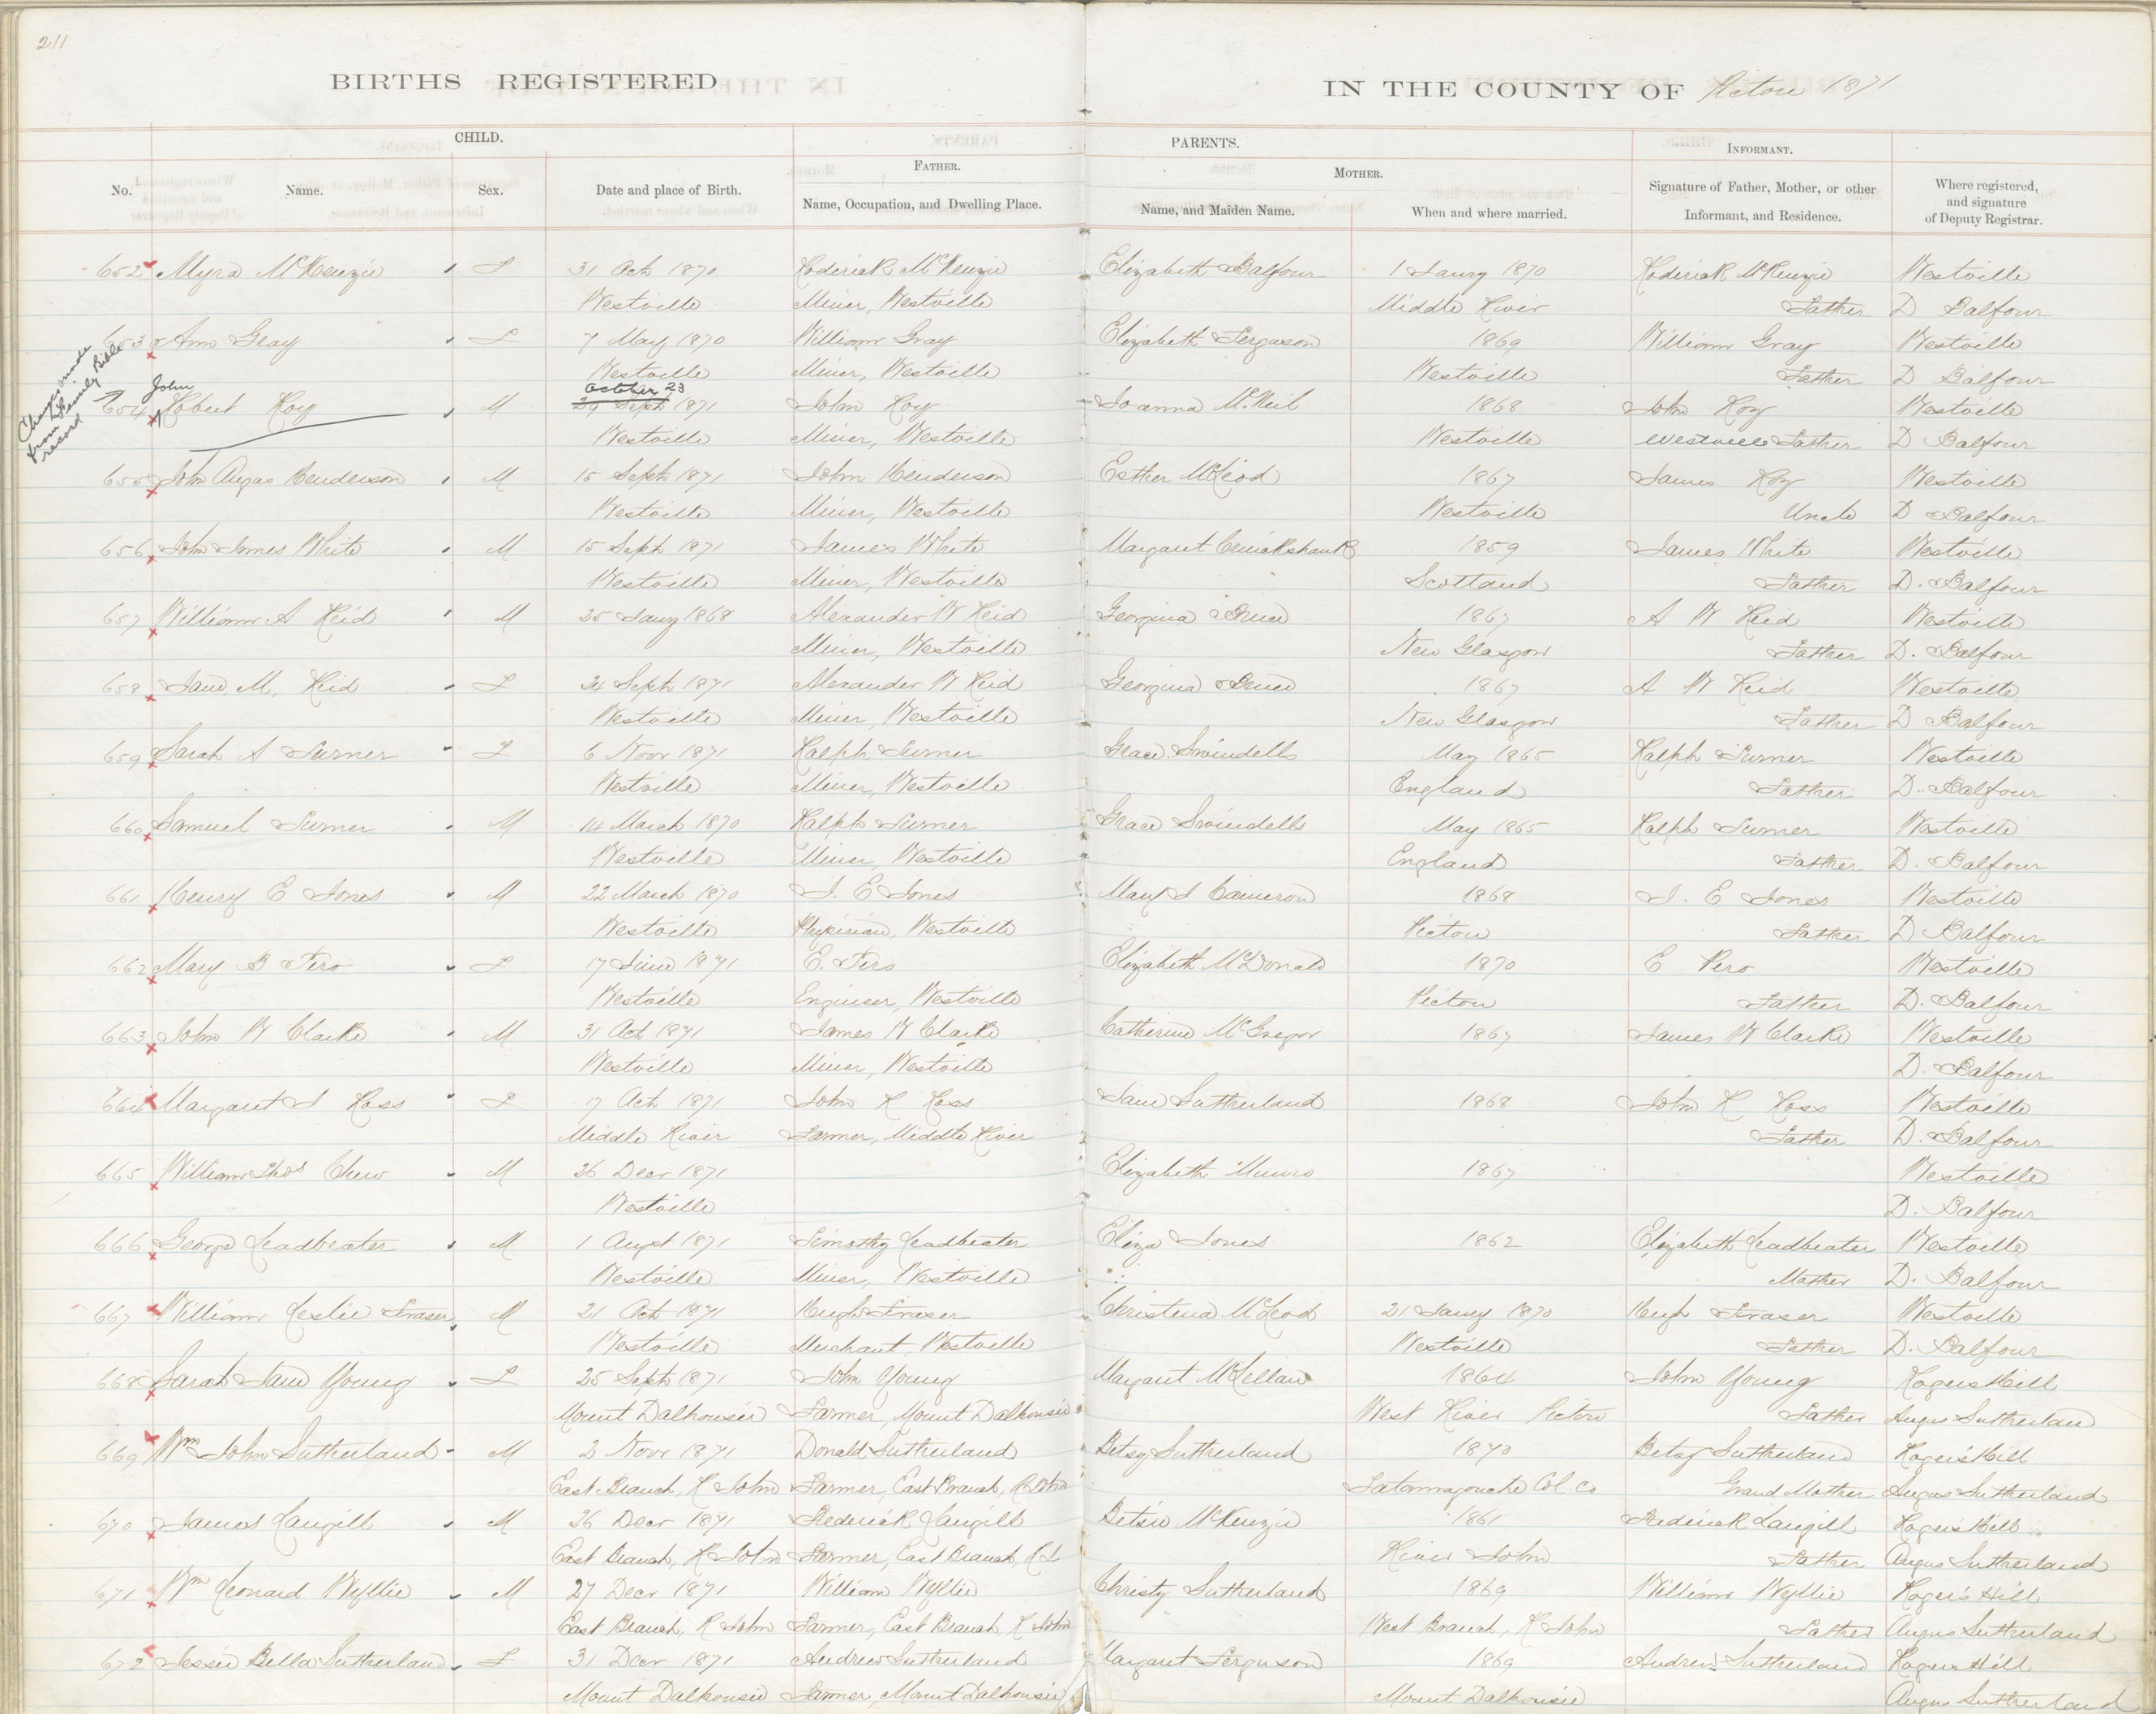 211
BIRTHS REGISTERED IN THE COUNTY OF Pictou 1871
CHILD. PARENTS. INFORMANT.
FATHER. MOTHER.
No. Name. Sex. Date and place of Birth. Name, Occupation, and Dwelling Place. Name, and Maiden Name. When and where married. Signature of Father, Mother, or other Informant, and Residence. Where registered, and signature of Deputy Registrar.
652 Myra McKenzie F 31 Oct 1870 Roderick McKenzie Elizabeth Balfour 1 Jany 1870 Roderick McKenzie Westville
Westville Miner, Westville Middle River Father D Balfour
653 Ann Gray F 7 May 1870 William Gray Elizabeth Ferguson 1869 William Gray Westville
Westville Miner, Westville Westville Father D Balfour
Changes made from Family Bible record
John October 23
654 Robert Roy M 29 Sept 1871 John Roy Joanna McNeil 1868 John Roy Westville
Westville Miner, Westville Westville Westville Father D Balfour
655 John Angus Henderson M 15 Sept 1871 John Henderson Esther McLeod 1867 James Roy Westville
Westville Miner, Westville Westville Uncle D Balfour
656 John James White M 15 Sept 1871 James White Margaret Cruickshank 1859 James White Westville
Westville Miner, Westville Scotland Father D. Balfour
657 William A Reid M 25 Jany 1868 Alexander W Reid Georgina Bruce 1867 A W Reid Westville
Miner, Westville New Glasgow Father D. Balfour
658 Jane M. Reid F 24 Sept 1871 Alexander W Reid Georgina Bruce 1867 A W Reid Westville
Westville Miner, Westville New Glasgow Father D Balfour
659 Sarah A Turner F 6 Novr 1871 Ralph Turner Grace Swindells May 1865 Ralph Turner Westville
Westville Miner, Westville England Father D. Balfour
660 Samuel Turner M 14 March 1870 Ralph Turner Grace Swindells May 1865 Ralph Turner Westville
Westville Miner, Westville England Father D. Balfour
661 Henry E Jones M 22 March 1870 J. E Jones Mary J Cameron 1868 J. E Jones Westville
Westville Physician, Westville Pictou Father D Balfour
662 Mary B F 17 June 1871 E. Elizabeth McDonald 1870 E Pero Westville
Westville Engineer, Westville Pictou Father D. Balfour
663 John W Clarke M 31 Oct 1871 James W Clarke Catherine McGregor 1867 James W Clarke Westville
Westville Miner, Westville D. Balfour
664 Margaret J Ross F 17 Oct 1871 John R Ross Jane Sutherland 1868 John R Ross Westville
Middle River Farmer, Middle River Father D. Balfour
665 William Thos Chew M 26 Decr 1871 Elizabeth Munro 1867 Westville
Westville D. Balfour
666 George Leadbeater M 1 Augst 1871 Timothy Leadbeater Eliza Jones 1862 Elizabeth Leadbeater Westville
Westville Miner, Westville Mother D. Balfour
667 William Leslie Fraser M 21 Oct 1871 Hugh Fraser Christena McLeod 21 Jany 1870 Hugh Fraser Westville
Westville Merchant, Westville Westville Father D. Balfour
668 Sarah Jane Young F 25 Sept 1871 John Young Margaret McLellan 1864 John Young Rogers Hill
Mount Dalhousie Farmer, Mount Dalhousie West River Pictou Father Angus Sutherland
669 Wm John Sutherland M 2 Novr 1871 Donald Sutherland Betsy Sutherland 1870 Betsy Sutherland Roger's Hill
East Branch, R John Farmer, East Branch, R John Tatamagouche Col Co Grand Mother Angus Sutherland
670 James Langill M 26 Decr 1871 Frederick Langill Betsie McKenzie 1861 Frederick Langill Roger's Hill
East Branch, R John Farmer, East Branch, R J River John Father Angus Sutherland
671 Wm Leonard Wyllie M 27 Decr 1871 William Wyllie Christy Sutherland 1869 William Wyllie Roger's Hill
East Branch, R John Farmer, East Branch, R John West Branch, R John Father Angus Sutherland
672 Jessie Bella Sutherland F 31 Decr 1871 Andrew Sutherland Margaret Ferguson 1869 Andrew Sutherland Rogers Hill
Mount Dalhousie Farmer, Mount Dalhousie Mount Dalhousie Angus Sutherland